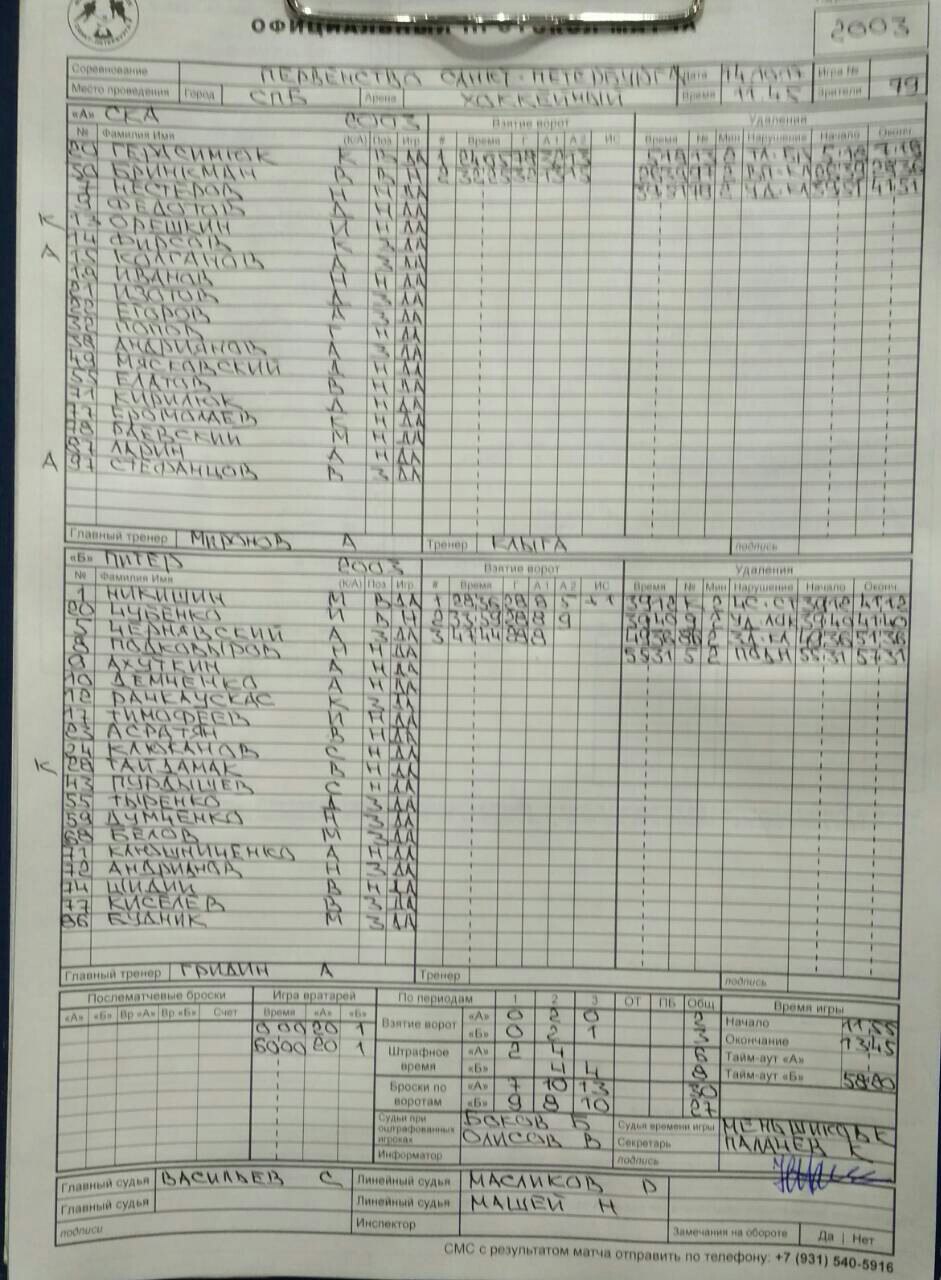 САНКТ-ПЕТЕРБУРГ
ОФИЦИАЛЬНЫЙ ПРОТОКОЛ МАТЧА
2003
Соревнование ПЕРВЕНСТВО САНКТ-ПЕТЕРБУРГА Дата 14.10.17 Игра №
Место проведения Город СПБ Арена ХОККЕЙНЫЙ Время 11.45 Зрители 79
«А» СКА 2003 Взятие ворот Удаления
№ Фамилия Имя (К/А) Поз Игр # Время Г А1 А2 ИС Время № Мин Нарушение Начало Оконч.
20 ГЕРАСИМЮК К В ДА 1 24 05 78 32 13 5 18 13 2 5 18 7 18
50 БРИНКМАН В В Н 2 32 25 32 13 15 97 2
7 НЕСТЕРОВ Н Н ДА 39 51 78 2 39 51 41 51
9 ФЕДОТОВ А Н ДА
К 13 ОРЕШКИН И Н ДА
14 ФИРСОВ К З ДА
А 15 КОЛГАНОВ А З ДА
19 ИВАНОВ Н Н ДА
21 ИЗОТОВ А З ДА
22 ЕГОРОВ А З ДА
32 ПОПОВ Г Н ДА
38 АНДРИЯНОВ А З ДА
49 МЯСКОВСКИЙ А Н ДА
55 ЕЛАГОВ В Н ДА
71 КИРИЛЮК А Н ДА
77 ЕРМОЛАЕВ К Н ДА
78 БАЕВСКИЙ М Н ДА
87 ЛАРИН А Н ДА
А 97 СТЕФАНЦОВ В З ДА
Главный тренер МИРОНОВ А Тренер КЛЫГА подпись
«Б» ПИТЕР 2003 Взятие ворот Удаления
№ Фамилия Имя (К/А) Поз Игр # Время Г А1 А2 ИС Время № Мин Нарушение Начало Оконч.
1 НИКИШИН М В ДА 1 28 36 28 8 5 +1 39 12 К 2 39 12 41 12
20 ЧУБЕНКО И В Н 2 33 59 28 8 9 39 40 9 2 39 40 41 40
5 ЧЕРНАВСКИЙ А З ДА 3 47 44 28 8 49 36 86 2 49 36 51 36
8 ПОДКОВЫРОВ Н Н ДА 55 31 5 2 55 31 57 31
9 АХУТКИН А Н ДА
10 ДЕМЧЕНКО А Н ДА
12 РАЧКАУСКАС К З ДА
17 ТИМОФЕЕВ И Н ДА
23 АСРАТЯН В Н ДА
24 КЛЮКАНОВ С Н ДА
К 28 ГАЙДАМАК В Н ДА
43 ПУРДЫШЕВ С Н ДА
55 ТЫРЕНКО А З ДА
59 ДУМЧЕНКО Н З ДА
68 БЕЛОВ М З ДА
71 КЛЮШНИЧЕНКО А Н ДА
72 АНДРИАНОВ Н З ДА
74 В Н ДА
77 КИСЕЛЕВ В З ДА
86 БУДНИК М З ДА
Главный тренер ГРИДИН А Тренер подпись
Послематчевые броски Игра вратарей По периодам 1 2 3 ОТ ПБ Общ Время игры
«А» «Б» Вр «А» Вр «Б» Счет Время «А» «Б» Взятие ворот «А» 0 2 0 2 Начало 11.55
00 00 20 1 «Б» 0 2 1 3 Окончание 13.45
60 00 20 1 Штрафное время «А» 2 4 6 Тайм-аут «А»
«Б» 4 4 8 Тайм-аут «Б» 58 20
Броски по воротам «А» 7 10 13 30
«Б» 9 8 10 27
Судьи при оштрафованных игроках БОКОВ Б Судья времени игры МЕНЬШИКОВ К
ОЛИСОВ В Секретарь ПАЛАЧЕВ К
Информатор подпись
Главный судья ВАСИЛЬЕВ С Линейный судья МАСЛИКОВ D
Главный судья Линейный судья МАШЕЙ Н
подписи Инспектор Замечания на обороте Да | Нет
СМС с результатом матча отправить по телефону: +7 (931) 540-5916